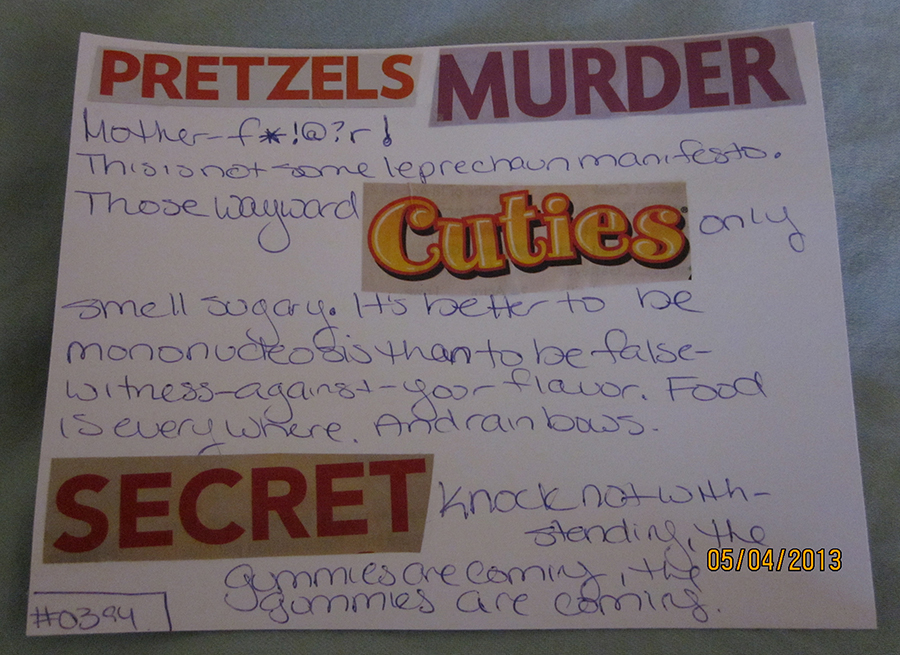 PRETZELS MURDER
Mother-f*!@?r!
This is not some leprechaun manifesto.
Those wayward Cuties only
smell sugary. It's better to be
mononucleosis than to be false-
witness-against-your flavor. Food
is everywhere. And rainbows.
SECRET Knock not with-
standing, the
gummies are coming, the
gummies are coming.
#0394
05/04/2013